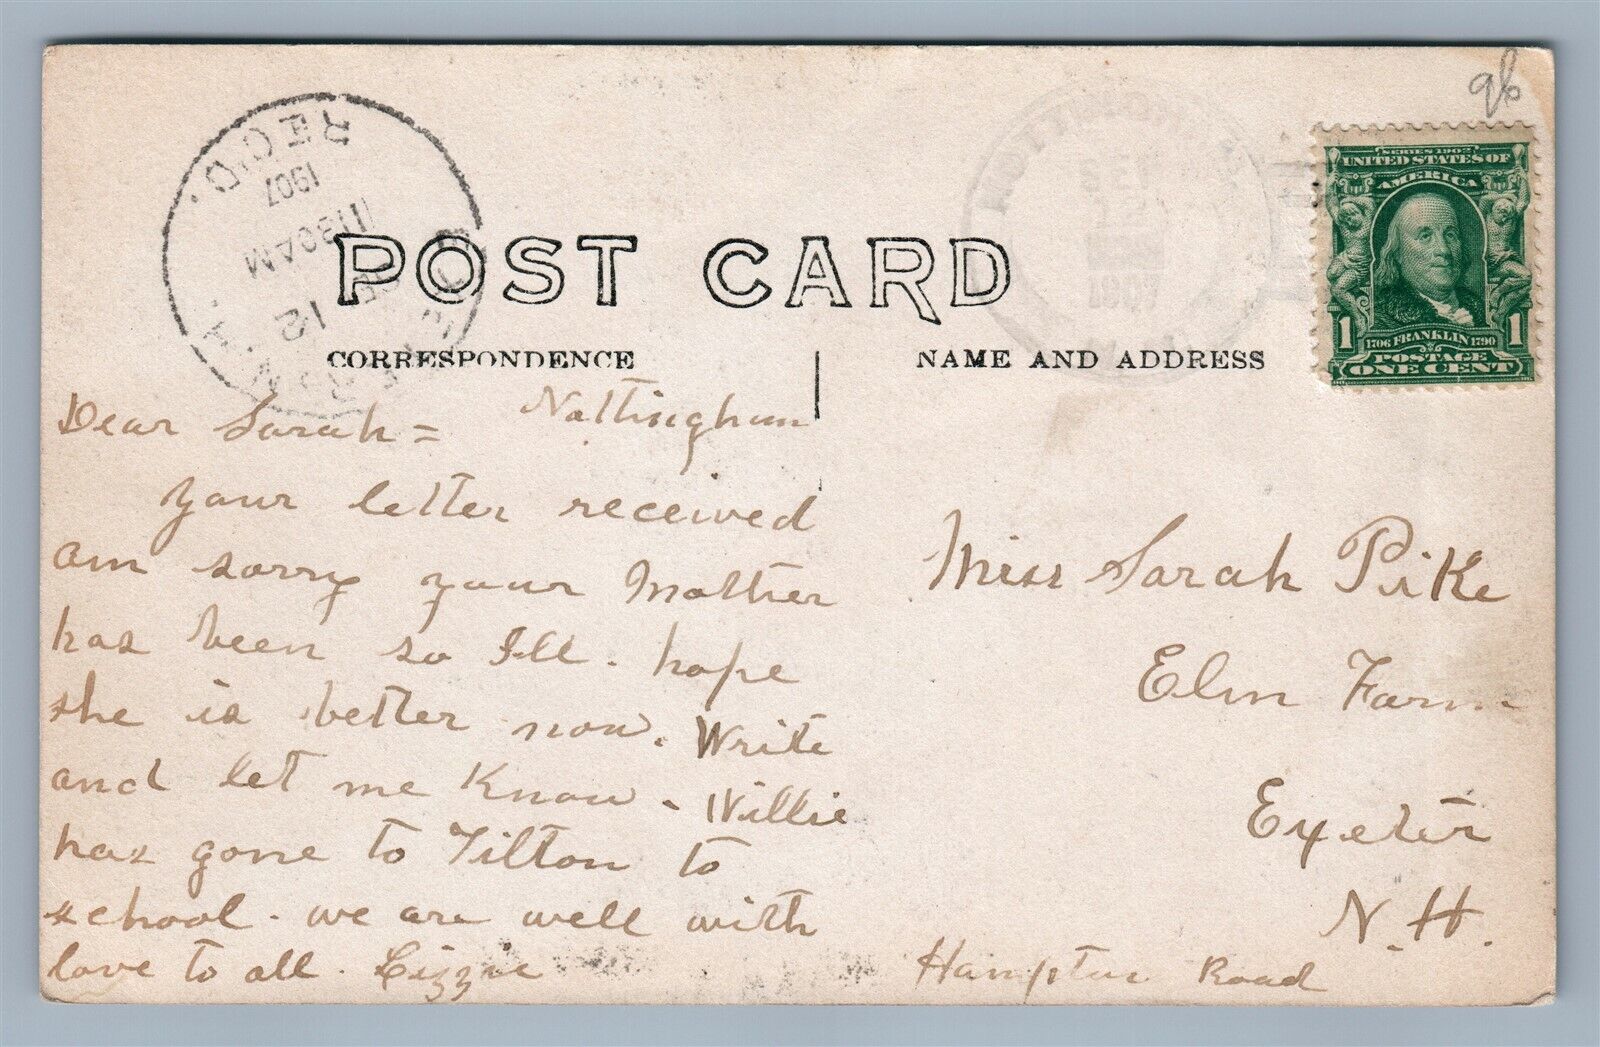 96
REC'D.
1907
1130 AM
12
N.H.
SERIES 1902
UNITED STATES OF
AMERICA
1 1706 FRANKLIN 1790 1
POSTAGE
ONE CENT
POST CARD
CORRESPONDENCE
NAME AND ADDRESS
Nottingham
Dear Sarah =
your letter received
am sorry your Mother
has been so Ill. hope
she is better now. Write
and let me Know. Willie
has gone to Tilton to
school. we are well with
love to all. Lizzie
Miss Sarah Pike
Elm Farm
Exeter
N.H.
Hampton Road